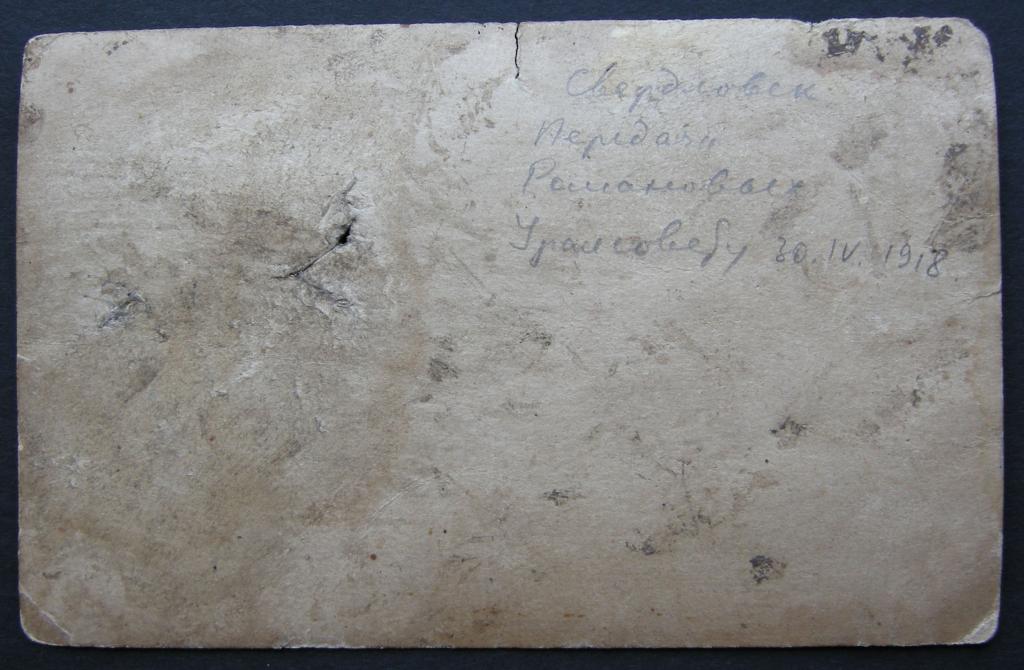 Свердловск
Передача
Романовых
Уралсовету 30.IV.1918